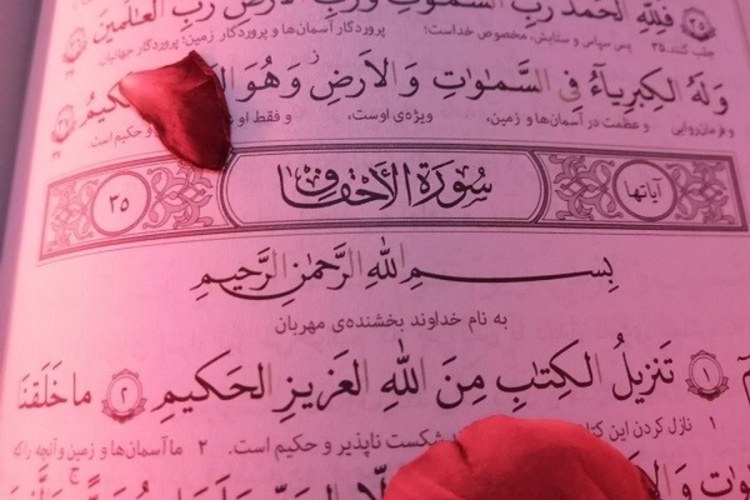 فَلِلّٰهِ الْحَمْدُ رَبِّ السَّمٰوٰتِ وَرَبِّ الْاَرْضِ رَبِّ الْعٰلَمينَ
جلب کنند. ۳۵ پس سپاس و ستایش، مخصوص خداست؛ پروردگار آسمان‌ها و پروردگار زمین؛ پروردگار جهانیان
وَلَهُ الكِبرِياۤءُ فِي السَّمٰوٰتِ وَالاَرضِ وَهُوَ
و فرمانروایی و عظمت در آسمان‌ها و زمین، ویژه‌ی اوست، و فقط او و حکیم است.
آیاتها سُورَةُ الأَحْقَاف ۳۵
بِسمِ اللّٰهِ الرَّحمٰنِ الرَّحيمِ
به نام خداوند بخشنده‌ی مهربان
۱ تَنزيلُ الكِتٰبِ مِنَ اللّٰهِ العَزيزِ الحَكيمِ ۲ ما خَلَقنَا
۱ نازل کردن این شکست ناپذیر و حکیم است. ۲ ما آسمان‌ها و زمین و آنچه را که